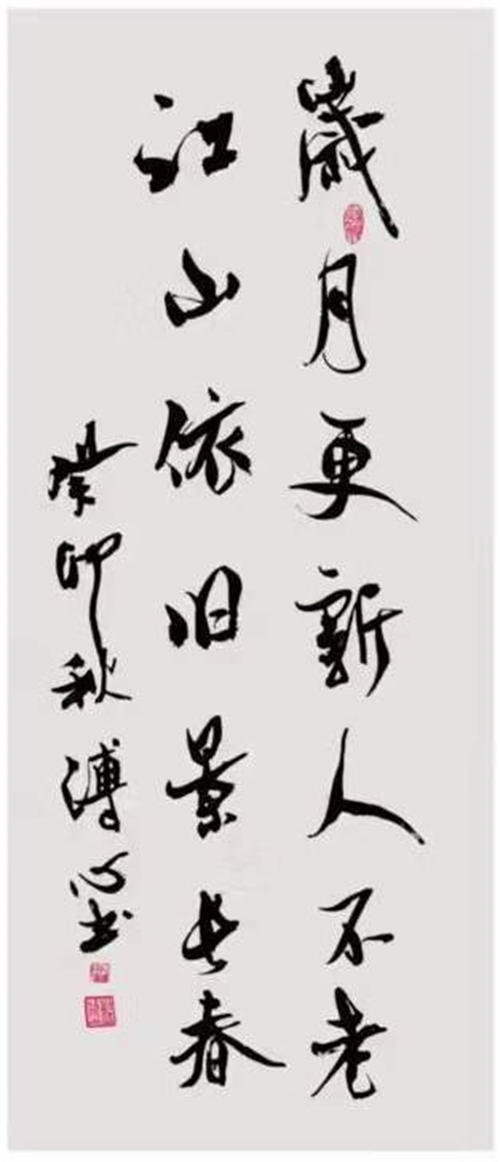 歲月更新人不老
江山依旧景长春
癸卯秋溥心书